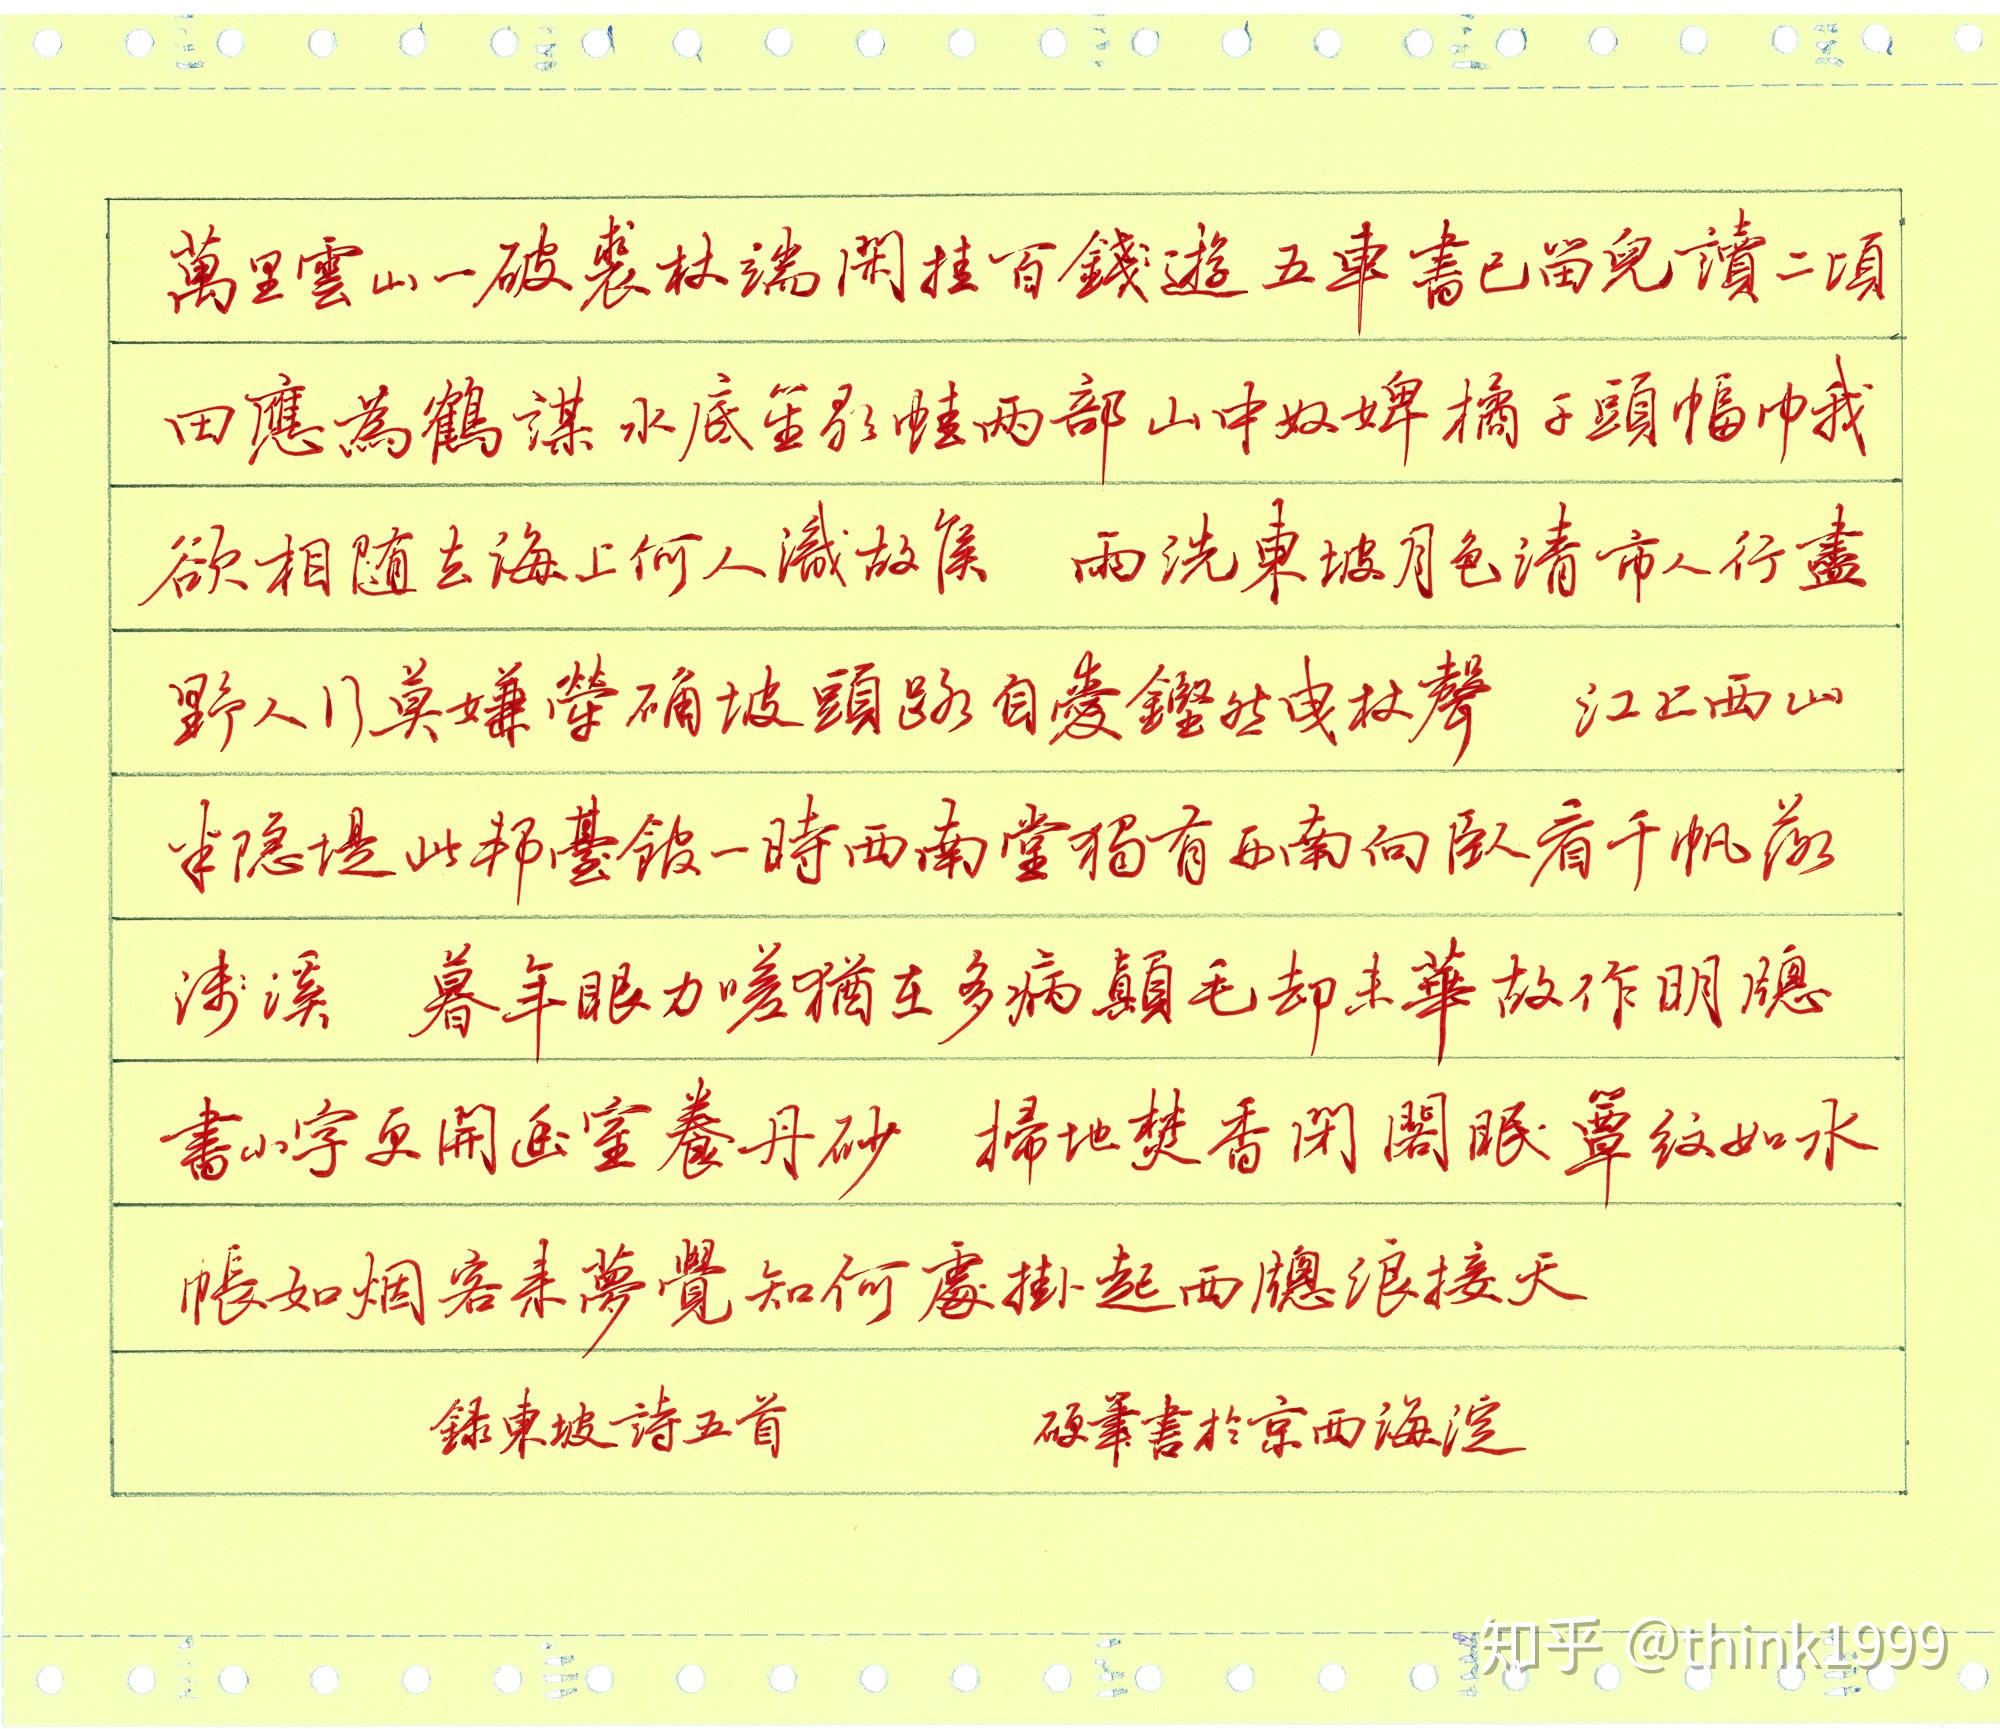 萬里雲山一破裘杖端閑挂百錢遊五車書已留兒讀二頃
田應為鶴謀水底笙歌蛙兩部山中奴婢橘千頭幅巾我
欲相随去海上何人識故侯 雨洗東坡月色清市人行盡
野人行莫嫌犖确坡頭路自愛鏗然曳杖聲 江上西山
半隐堤此邦臺館一時西南堂獨有西南向臥看千帆落
淺溪 暮年眼力嗟猶在多病顛毛却未華故作明牕
書小字更開幽室養丹砂 掃地焚香閉閣眠簟紋如水
帳如烟客来夢覺知何處掛起西牕浪接天
録東坡詩五首 硬筆書於京西海淀
知乎 @think1999